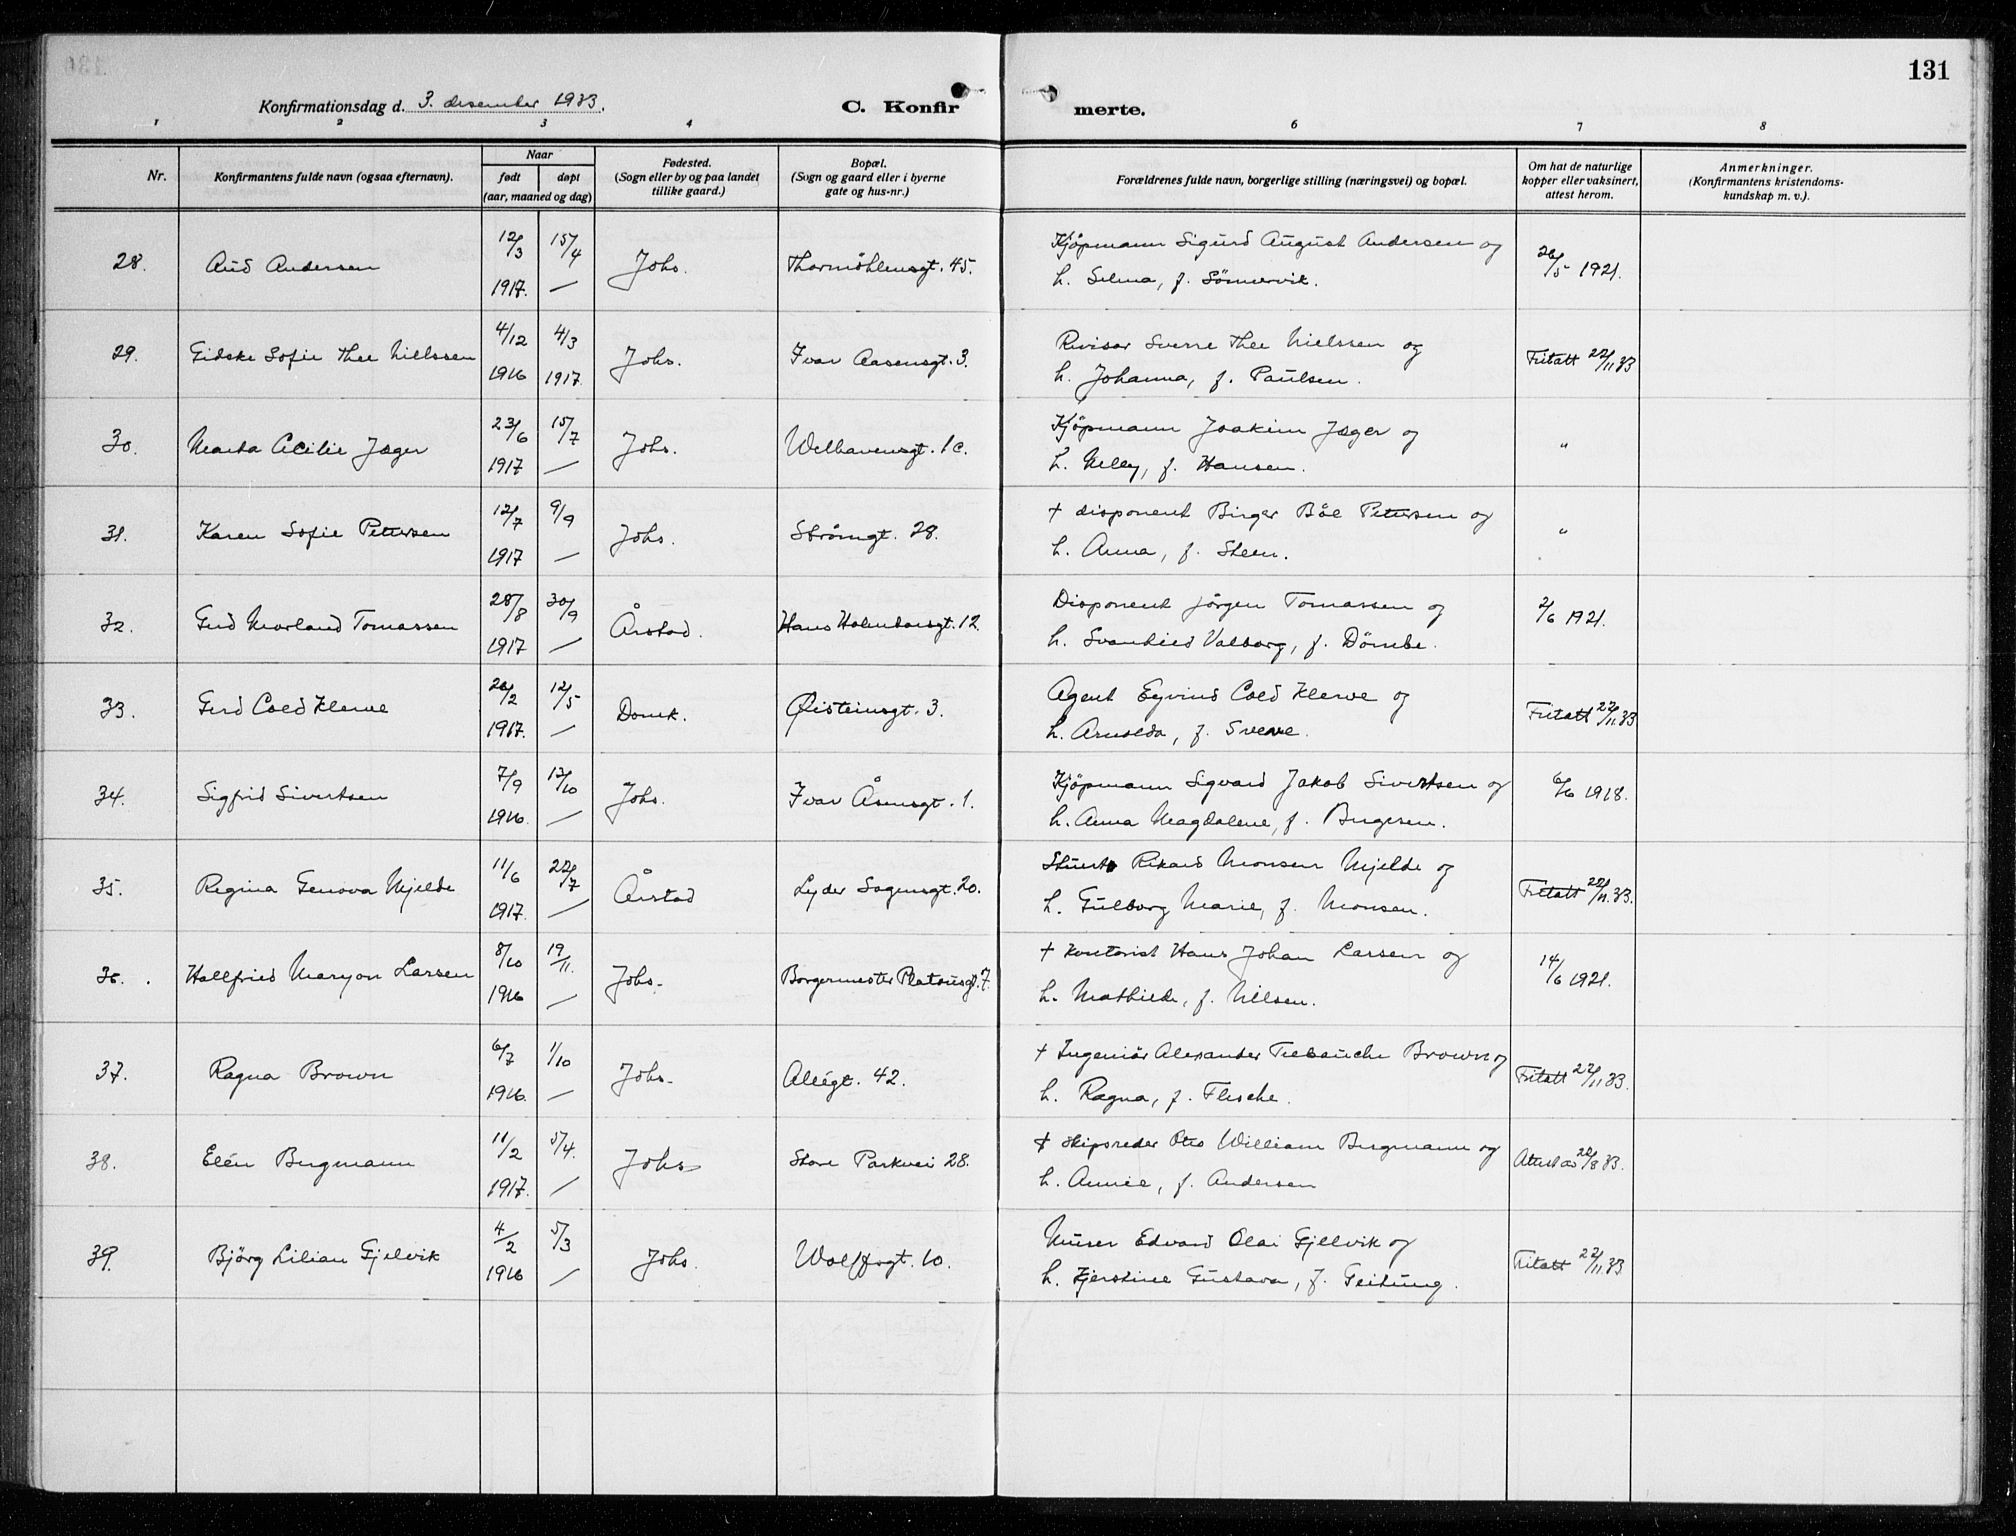 131
Konfirmationsdag d. 3. desember 1933.
C. Konfir merte.
1 2 3 4 6 7 8
Nr.
Konfirmantens fulde navn (ogsaa efternavn).
Naar
født døpt
(aar, maaned og dag)
Fødested.
(Sogn eller by og paa landet
tillike gaard.)
Bopæl.
(Sogn og gaard eller i byerne
gate og hus-nr.)
Forældrenes fulde navn, borgerlige stilling (næringsvei) og bopæl.
Om hat de naturlige
kopper eller vaksinert,
attest herom.
Anmerkninger.
(Konfirmantens kristendoms-
kundskap m. v.).
28. Aud Andersen 12/3 1917. 15/4 — Johs. Thormøhlensgt. 45. Kjøpmann Sigurd August Andersen og
h. Selma, f. Sönnervik. 26/5 1921.
29. Gidske Sofie Thee Nielssen 4/12 1916 4/3 1917. Johs. Ivar Aasensgt. 3. Revisor Sverre Thee Nielssen og
h. Johanna, f. Paulsen. Fritatt 22/11 33
30. Marta Cecilie Jæger 23/6 1917 15/7 — Johs. Welhavensgt. 1c. Kjøpmann Joakim Jæger og
h. Nelly, f. Hansen. "
31. Karen Sofie Pettersen 12/7 1917 9/9 — Johs. Strömgt. 28. + disponent Birger Båe Pettersen og
h. Anna, f. Steen. "
32. Gerd Morland Tomassen 28/8 1917 30/9 — Årstad. Hans Holmboesgt. 12. Disponent Jörgen Tomassen og
h. Svanhied Valborg, f. 2/6 1921.
33. Gerd Coed Klerve 20/2 1917. 12/5 — Domk. Øisteinsgt. 3. Agent Eyvind Coed Klerve og
h. Arnolda, f. Fritatt 22/11 33
34. Sigfrid Sivertsen 7/9 1916. 17/10 — Johs. Ivar Åsensgt. 1. Kjøpmann Sigvard Jakob Sivertsen og
h. Anna Magdalene, f. Birgesen. 6/6 1918.
35. Regina Genova Mjelde 11/6 1917. 22/7 — Årstad Lyder Sagensgt. 20. Stuert Rikard Monsen Mjelde og
h. Gulborg Marie, f. Monsen. Fritatt 22/11 33.
36. Hallfried Maryon Larsen 8/10 1916 19/11. — Johs. Borgermester Platousgt. 7. + Kontorist Hans Johan Larsen og
h. Mathilde, f. Nilsen. 14/6 1921.
37. Ragna Brown 6/7 1916. 1/10 — Johs. Allégt. 42. + Ingeniör Alexander Brown og
h. Ragna, f. Flesche. Fritatt 22/11 33.
38. Elén Bergmann 11/2 1917. 5/4. — Johs. Store Parkvei 28. + Skipsreder Otto William Bergmann og
h. Annie, f. Andersen 22/8 33.
39. Bjørg Lilian Gjelvik 4/2 1916 5/3 — Johs. Wolffsgt. 10. Murer Edvard Olai Gjelvik og
h. Kjerstine Gustava, f. Geitung. Fritatt 22/11 33